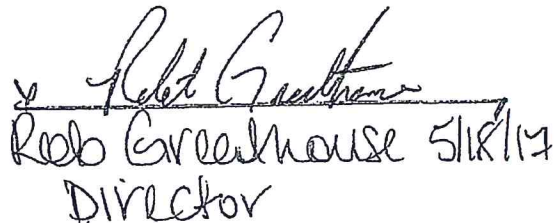 x Robt Greenhouse
Rob Greenhouse 5/18/17
Director